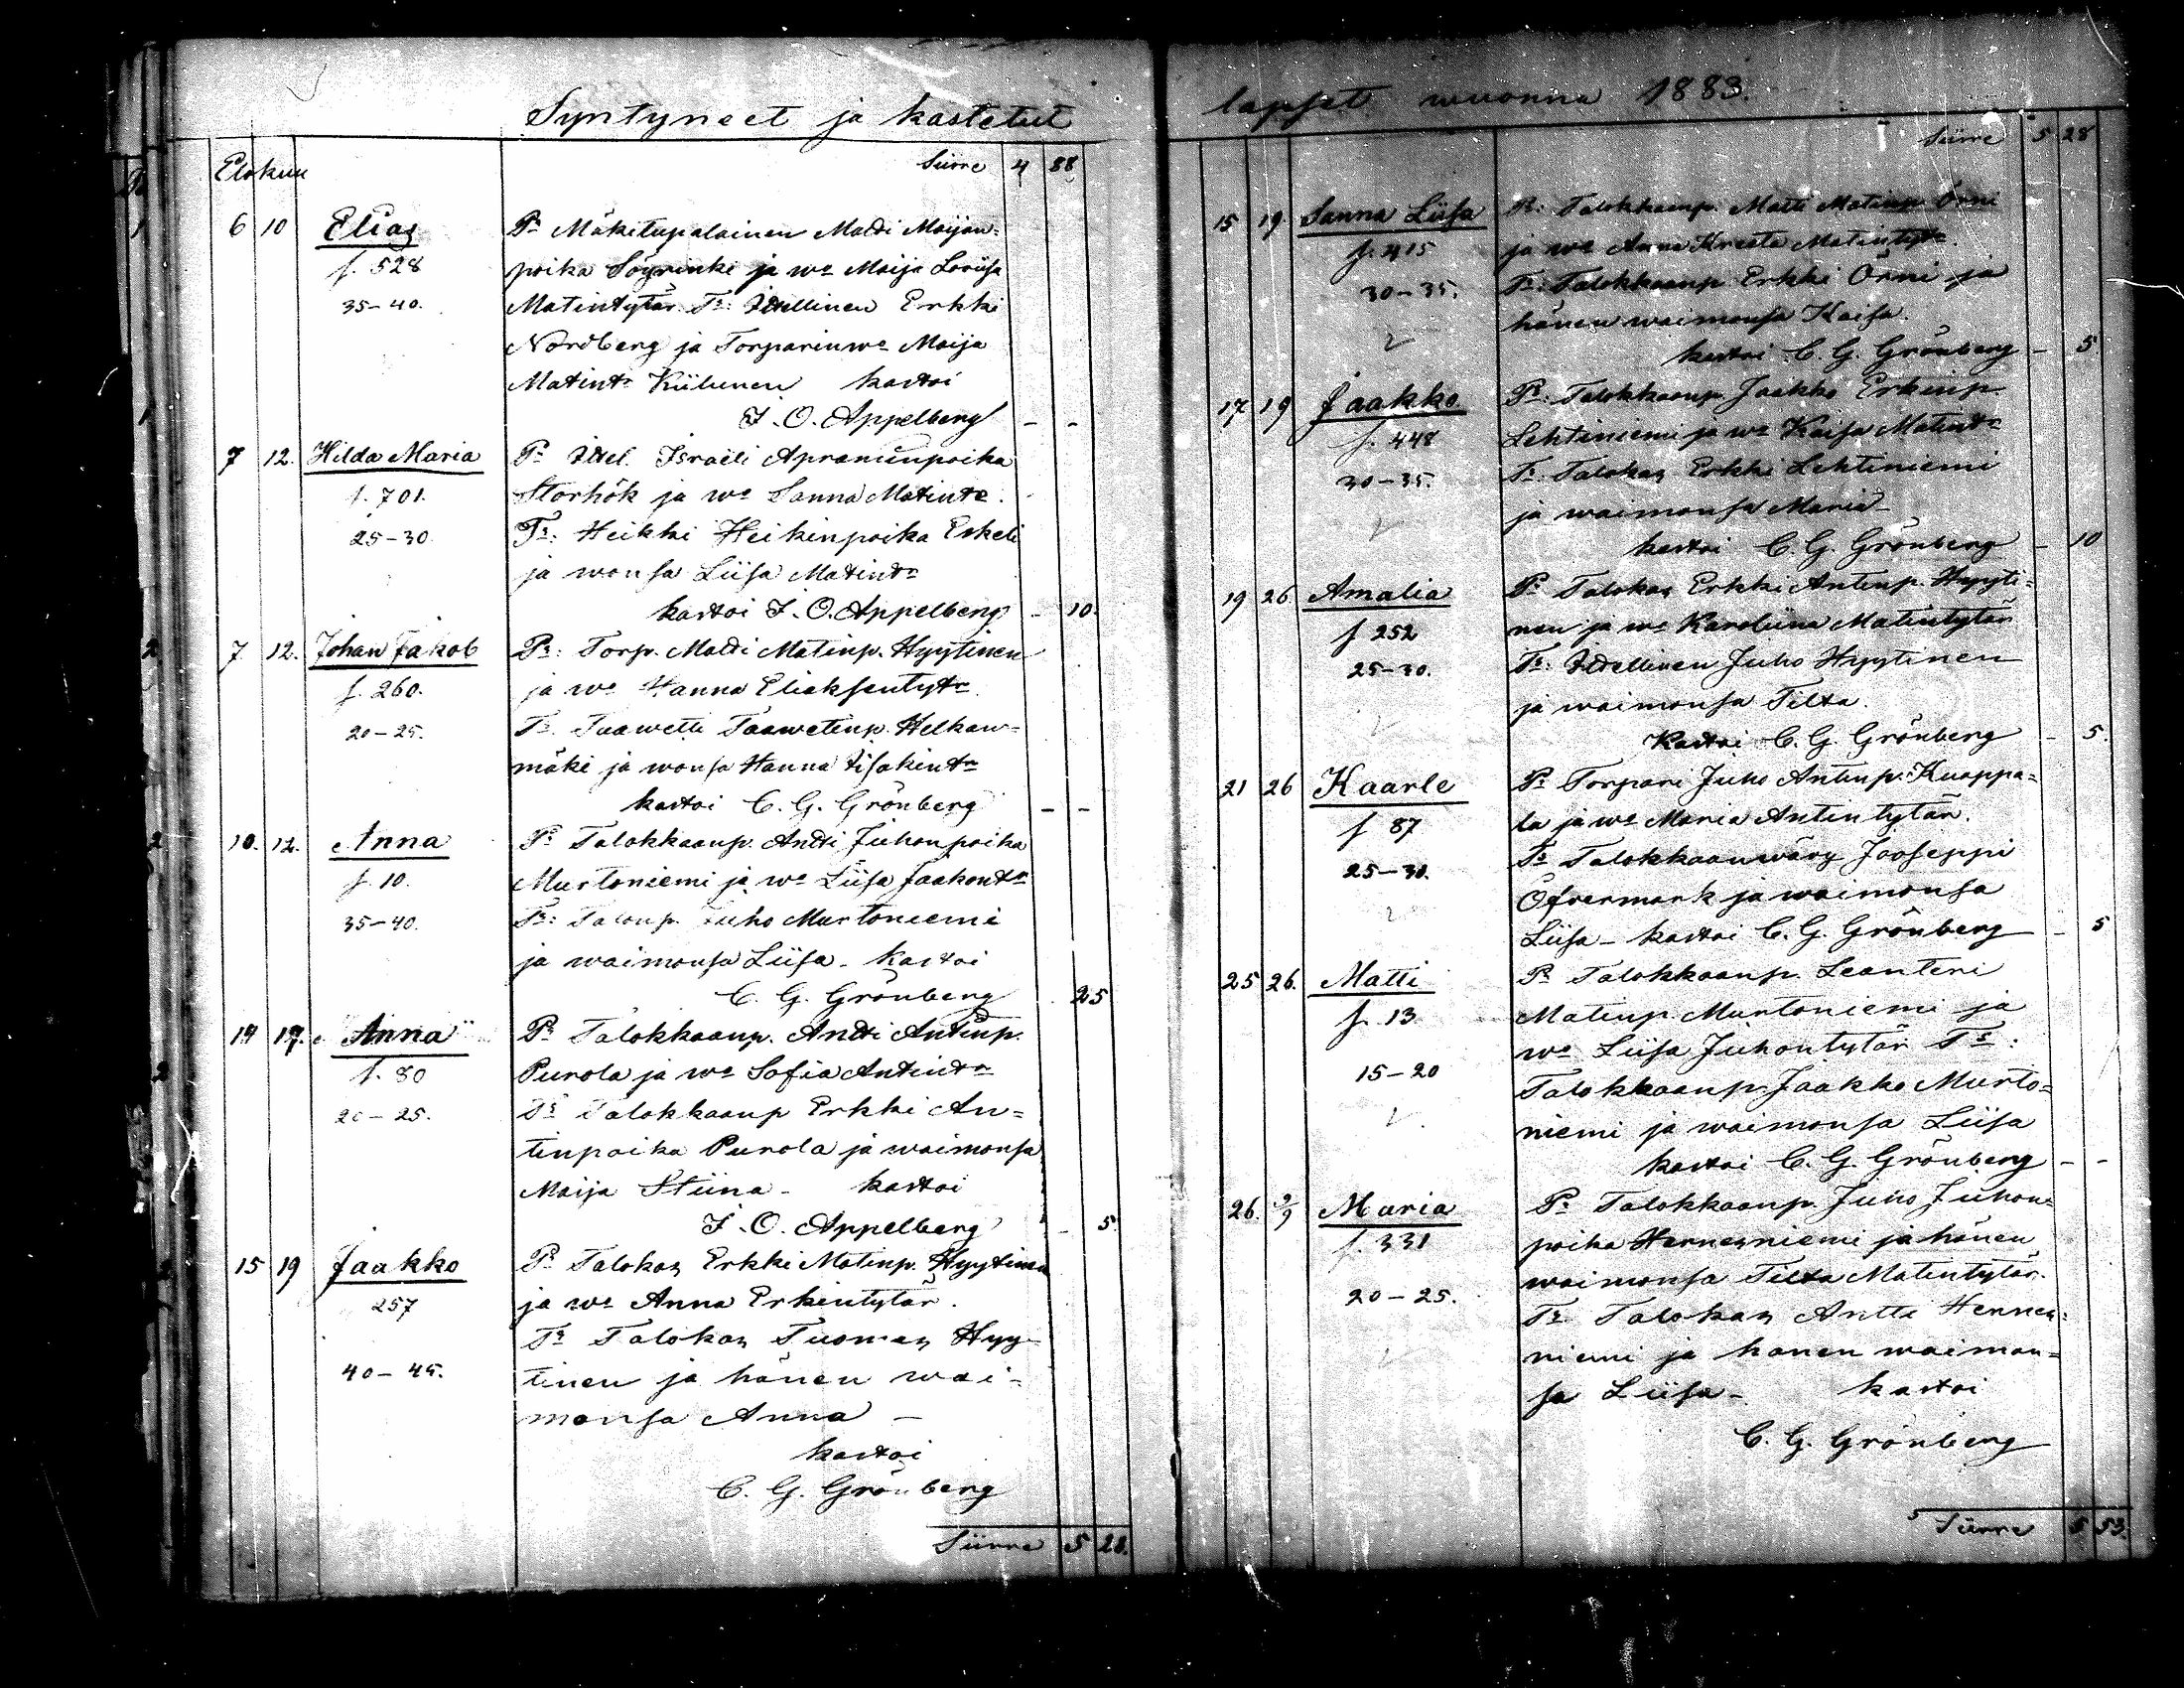 Syntyneet ja kastetut
Elokuu
Siirre 4 88
6 10 Elias
f. 528
35-40.
Pr Mäkitupalainen Matti Maijan-
poika Söyrinki ja wo Maija Loviisa
Matintytär Tr: Itsellinen Erkki
Nordberg ja Torparinwo Maija
Matintr Kiilunen kastoi
J. O. Appelberg - -
7 12. Hilda Maria
f. 701.
25-30
Pr Itsel. Israeli Apraminpoika
Storhök ja wo Sanna Matintr.
Tr: Heikki Heikinpoika Eskeli
ja wonsa Liisa Matintr
kastoi J. O. Appelberg - 10.
7. 12. Johan Jakob
f. 260.
20-25.
Pr: Torp. Matti Matinp. Hyytinen
ja wo Hanna Eliaksentytr
Tr. Taawetti Taawetinp. Helkaw-
mäki ja wonsa Hanna Iisakintr
kastoi C. G. Grönberg - -
10. 12. Anna
f. 10.
35-40.
Pr Talokkaanp. Antti Juhonpoika
Murtoniemi ja wo Liisa Jaakontr
Tr: Talonp. Juho Murtoniemi
ja waimonsa Liisa - Kastoi
C. G. Grönberg 25
14 17. Anna
f. 80
20-25.
Pr Talokkaanp. Antti Antinp.
Purola ja wo Sofia Antintr
Tr Talokkaanp Erkki An-
tinpoika Purola ja waimonsa
Maija Stiina - kastoi
J. O. Appelberg - 5.
15 19 Jaakko
257
40-45.
Pr Talokas Erkki Matinp. Hyytinen
ja wo Anna Erkintytär.
Tr Talokas Tuomas Hyy-
tinen ja hänen wai-
monsa Anna -
kastoi
C. G. Grönberg
Siirre 5 28.
lapset wuonna 1883.
Siirre 5 28
15 19 Sanna Liisa
f. 415
30-35.
Pr: Talokkaanp. Matti Matinp Örni
ja wo Anna Kreeta Matintytr.
Tr: Talokkaanp Erkki Örni ja
hänen waimonsa Kaisa.
kastoi C. G. Grönberg - 5
17 19 Jaakko
f. 448
30-35.
Pr: Talokkaanp Jaakko Erkinp.
Lehtiniemi ja wo Kaisa Matintr
Tr: Talokas Erkki Lehtiniemi
ja waimonsa Maria -
kastoi C. G. Grönberg - 10
19 26 Amalia
f 252
25-30.
Pr Talokas Erkki Antinp. Hyyti-
nen ja wo Karoliina Matintytär
Tr: Itsellinen Juho Hyytinen
ja waimonsa Tilta.
Kastoi C. G. Grönberg - 5.
21 26 Kaarle
f 87
25-30.
Pr Torpari Juho Antinp. Kuoppa-
la ja wo Maria Antintytär.
Tr Talokkaanwäwy Jooseppi
Öfvermark ja waimonsa
Liisa - kastoi C. G. Grönberg - 5
25 26. Matti
f. 13
15-20
Pr Talokkaanp. Leanteri
Matinp Murtoniemi ja
wo Liisa Juhontytär Tr:
Talokkaanp. Jaakko Murto-
niemi ja waimonsa Liisa
kastoi C. G. Grönberg - -
26. 2/9 Maria
f. 331
20-25.
Pr Talokkaanp. Juho Juhon-
poika Hernesniemi ja hänen
waimonsa Tilta Matintytär.
Tr Talokas Antti Hernes-
niemi ja hänen waimon-
sa Liisa - kastoi
C. G. Grönberg
Siirre 5 53.